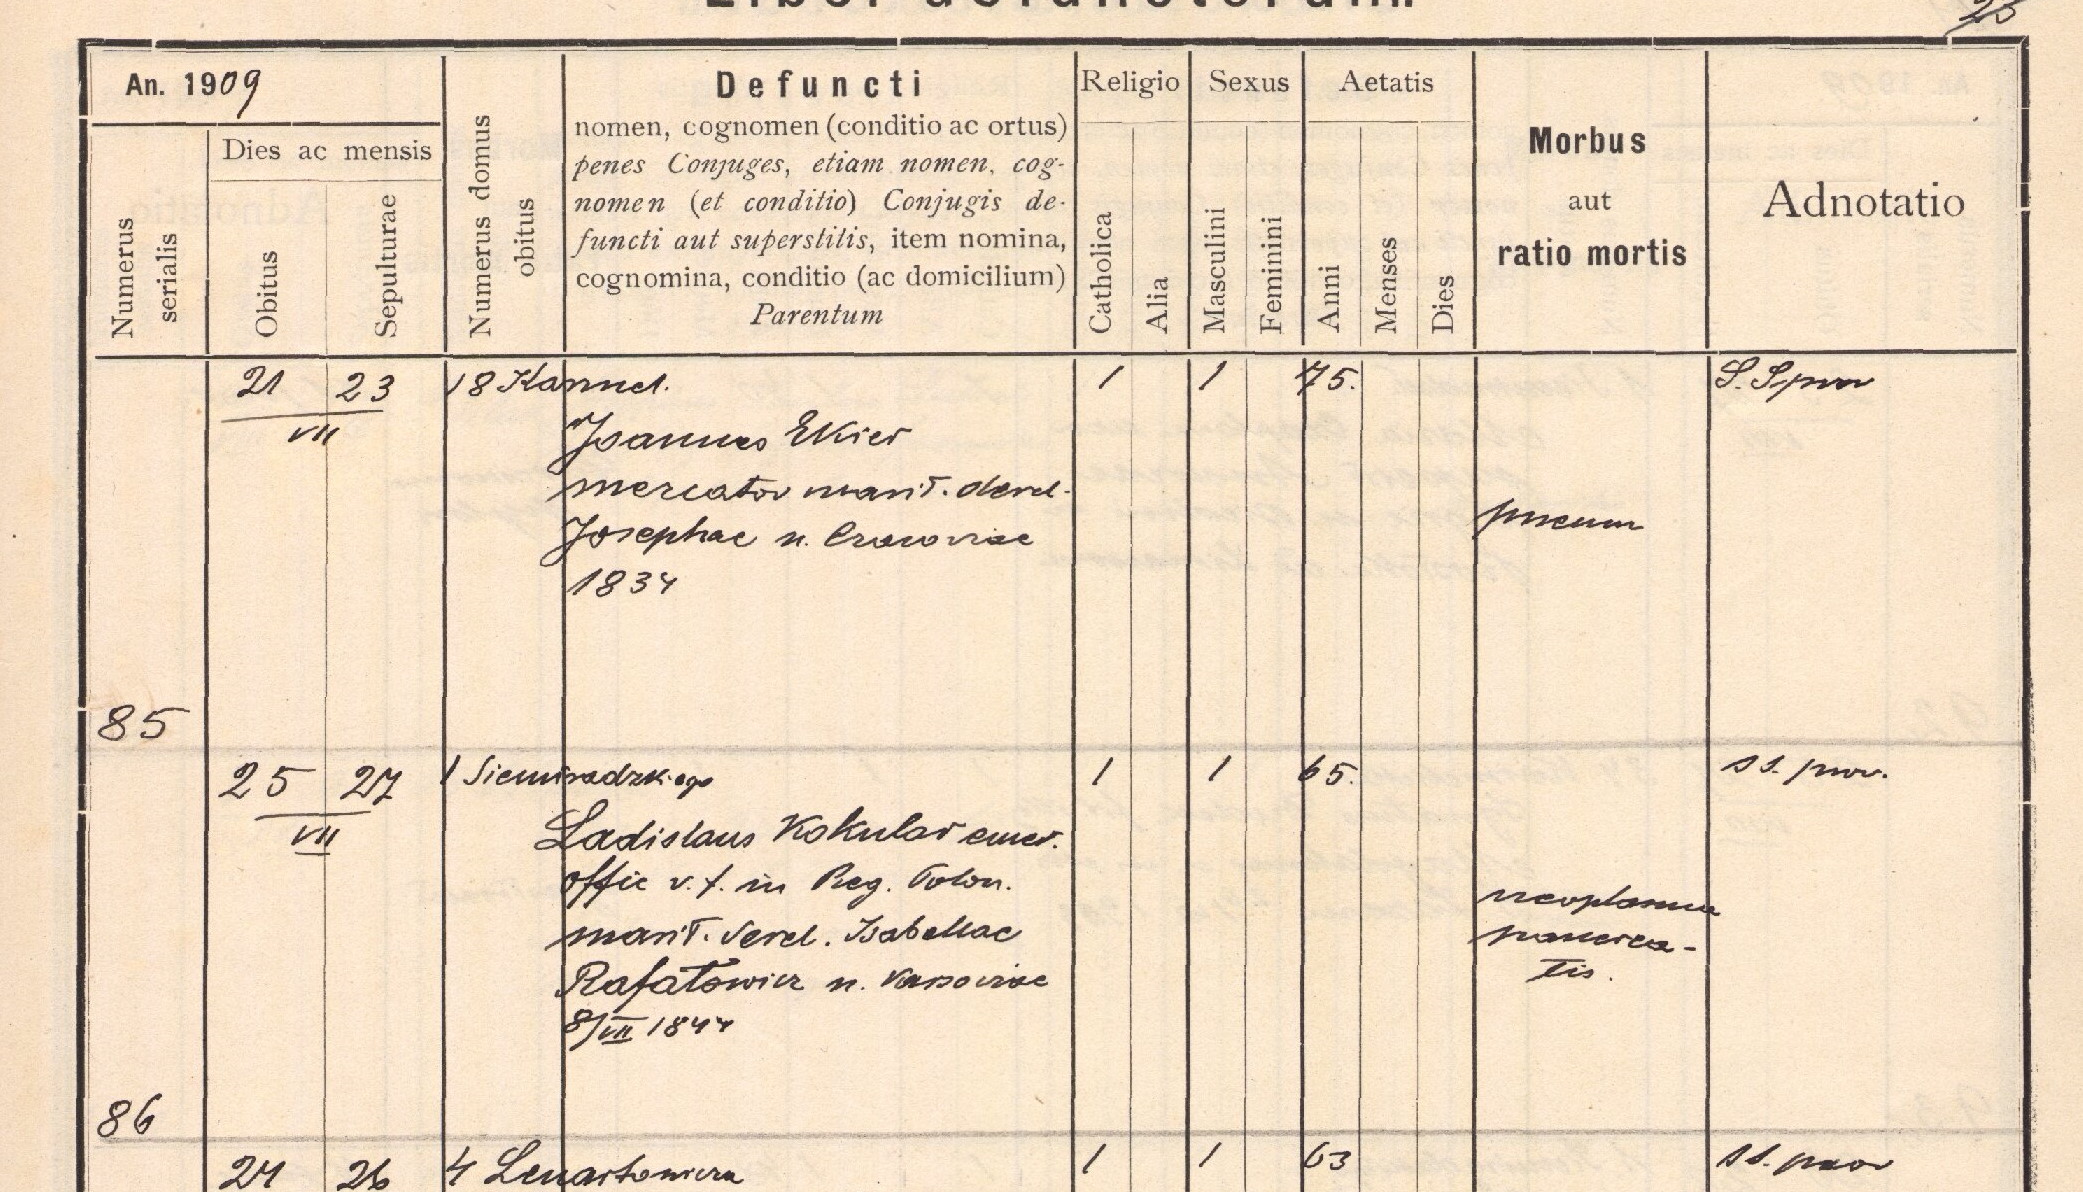 Liber defunctorum
25
An. 1909
Dies ac mensis
Numerus serialis
Obitus
Sepulturae
Numerus domus obitus
Defuncti
nomen, cognomen (conditio ac ortus)
penes Conjuges, etiam nomen, cog-
nomen (et conditio) Conjugis de-
functi aut superstitis, item nomina,
cognomina, conditio (ac domicilium)
Parentum
Religio
Catholica
Alia
Sexus
Masculini
Feminini
Aetatis
Anni
Menses
Dies
Morbus
aut
ratio mortis
Adnotatio
21 23 18 Karmel. 1 1 75. S. S. prov
VII
Joannes Ekier
mercator marit. derel.
Josephae n. Cracoviae
1834
pneum
85
25 27 1 Siemiradzkiego 1 1 65. SS. prov.
VII
Ladislaus Kokular emer.
offic v. f. in Reg. Polon.
marit. derel. Isabellae
Rafałowicz n. Varsoviae
8/VII 1844
neoplasma
pancrea-
tis.
86
24 26 4 Lenartowicza 1 1 63 SS. prov